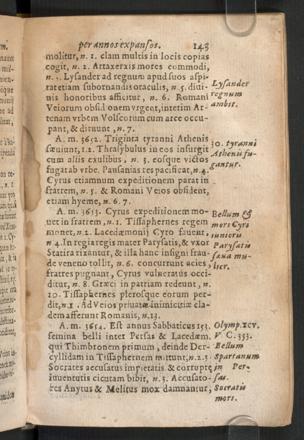 per annos expansos. 143
molitur, n. 1. clam multis in locis copias
cogit, n. 12. Artaxerxis mores commodi,
n. . Lysander ad regnum apud suos aspi-
rat etiam subornandis otaculis, n. 5. divi-
nis honoribus afficitur, n. 6. Romani
Veiorum obsidionem urgent, interim Ar-
tenam urbem Volscorum cum arce occu-
pant, & diruunt, n. 7.
Lysander
regnum
ambit.
A. m. 3652. Triginta tyranni Athenis
sæviunt, 1.2. Thrasybulus in eos insurgit
cum aliis exulibus, n. 3. eosque victos
fugat ab urbe. Pausanias res pacificat, n. 4.
Cyrus etiamnum expeditionem parat in
fratrem, n. 5. & Romani Veios obsident,
etiam hyeme, n. 6. 7.
30. tyranni
Athenis fu-
gantur.
A. m. 3653. Cyrus expeditionem mo-
vet in fratrem, n. 1. Tissaphernes regem
monet, n. 2. Lacedæmonij Cyro favent,
n. 4. In regia regis mater Parysatis, & uxor
Statira rixantur, & illa hanc insigni frau-
de veneno tollit, n. 6. concurrunt acies
fratres pugnant, Cyrus vulneratus occi-
ditur, n. 8. Græci in patriam redeunt, n.
10. Tissaphernes plerosque eorum per-
dit, n. 1. Ad Veios privatæ inimicitiæ cla-
dem afferunt Romanis, n. 13.
Bellum &
mors Cyri
iunioris
Parysatis
sæva mu-
lier.
A. m. 3654. Est annus Sabbaticus 153.
semina belli inter Persas & Lacedæm.
qui Thimbronem primum, deinde Der-
cyllidam in Tissaphernem mittunt, n. 2. 3.
Socrates accusatus impietatis & corruptæ
iuventutis cicutam bibit, n. 3. Accusato-
res Anytus & Melitus mox damnantur,
Olymp. xcv.
V C. 353.
Bellum
Spartanum
in Per-
sas.
Socratis
mors.